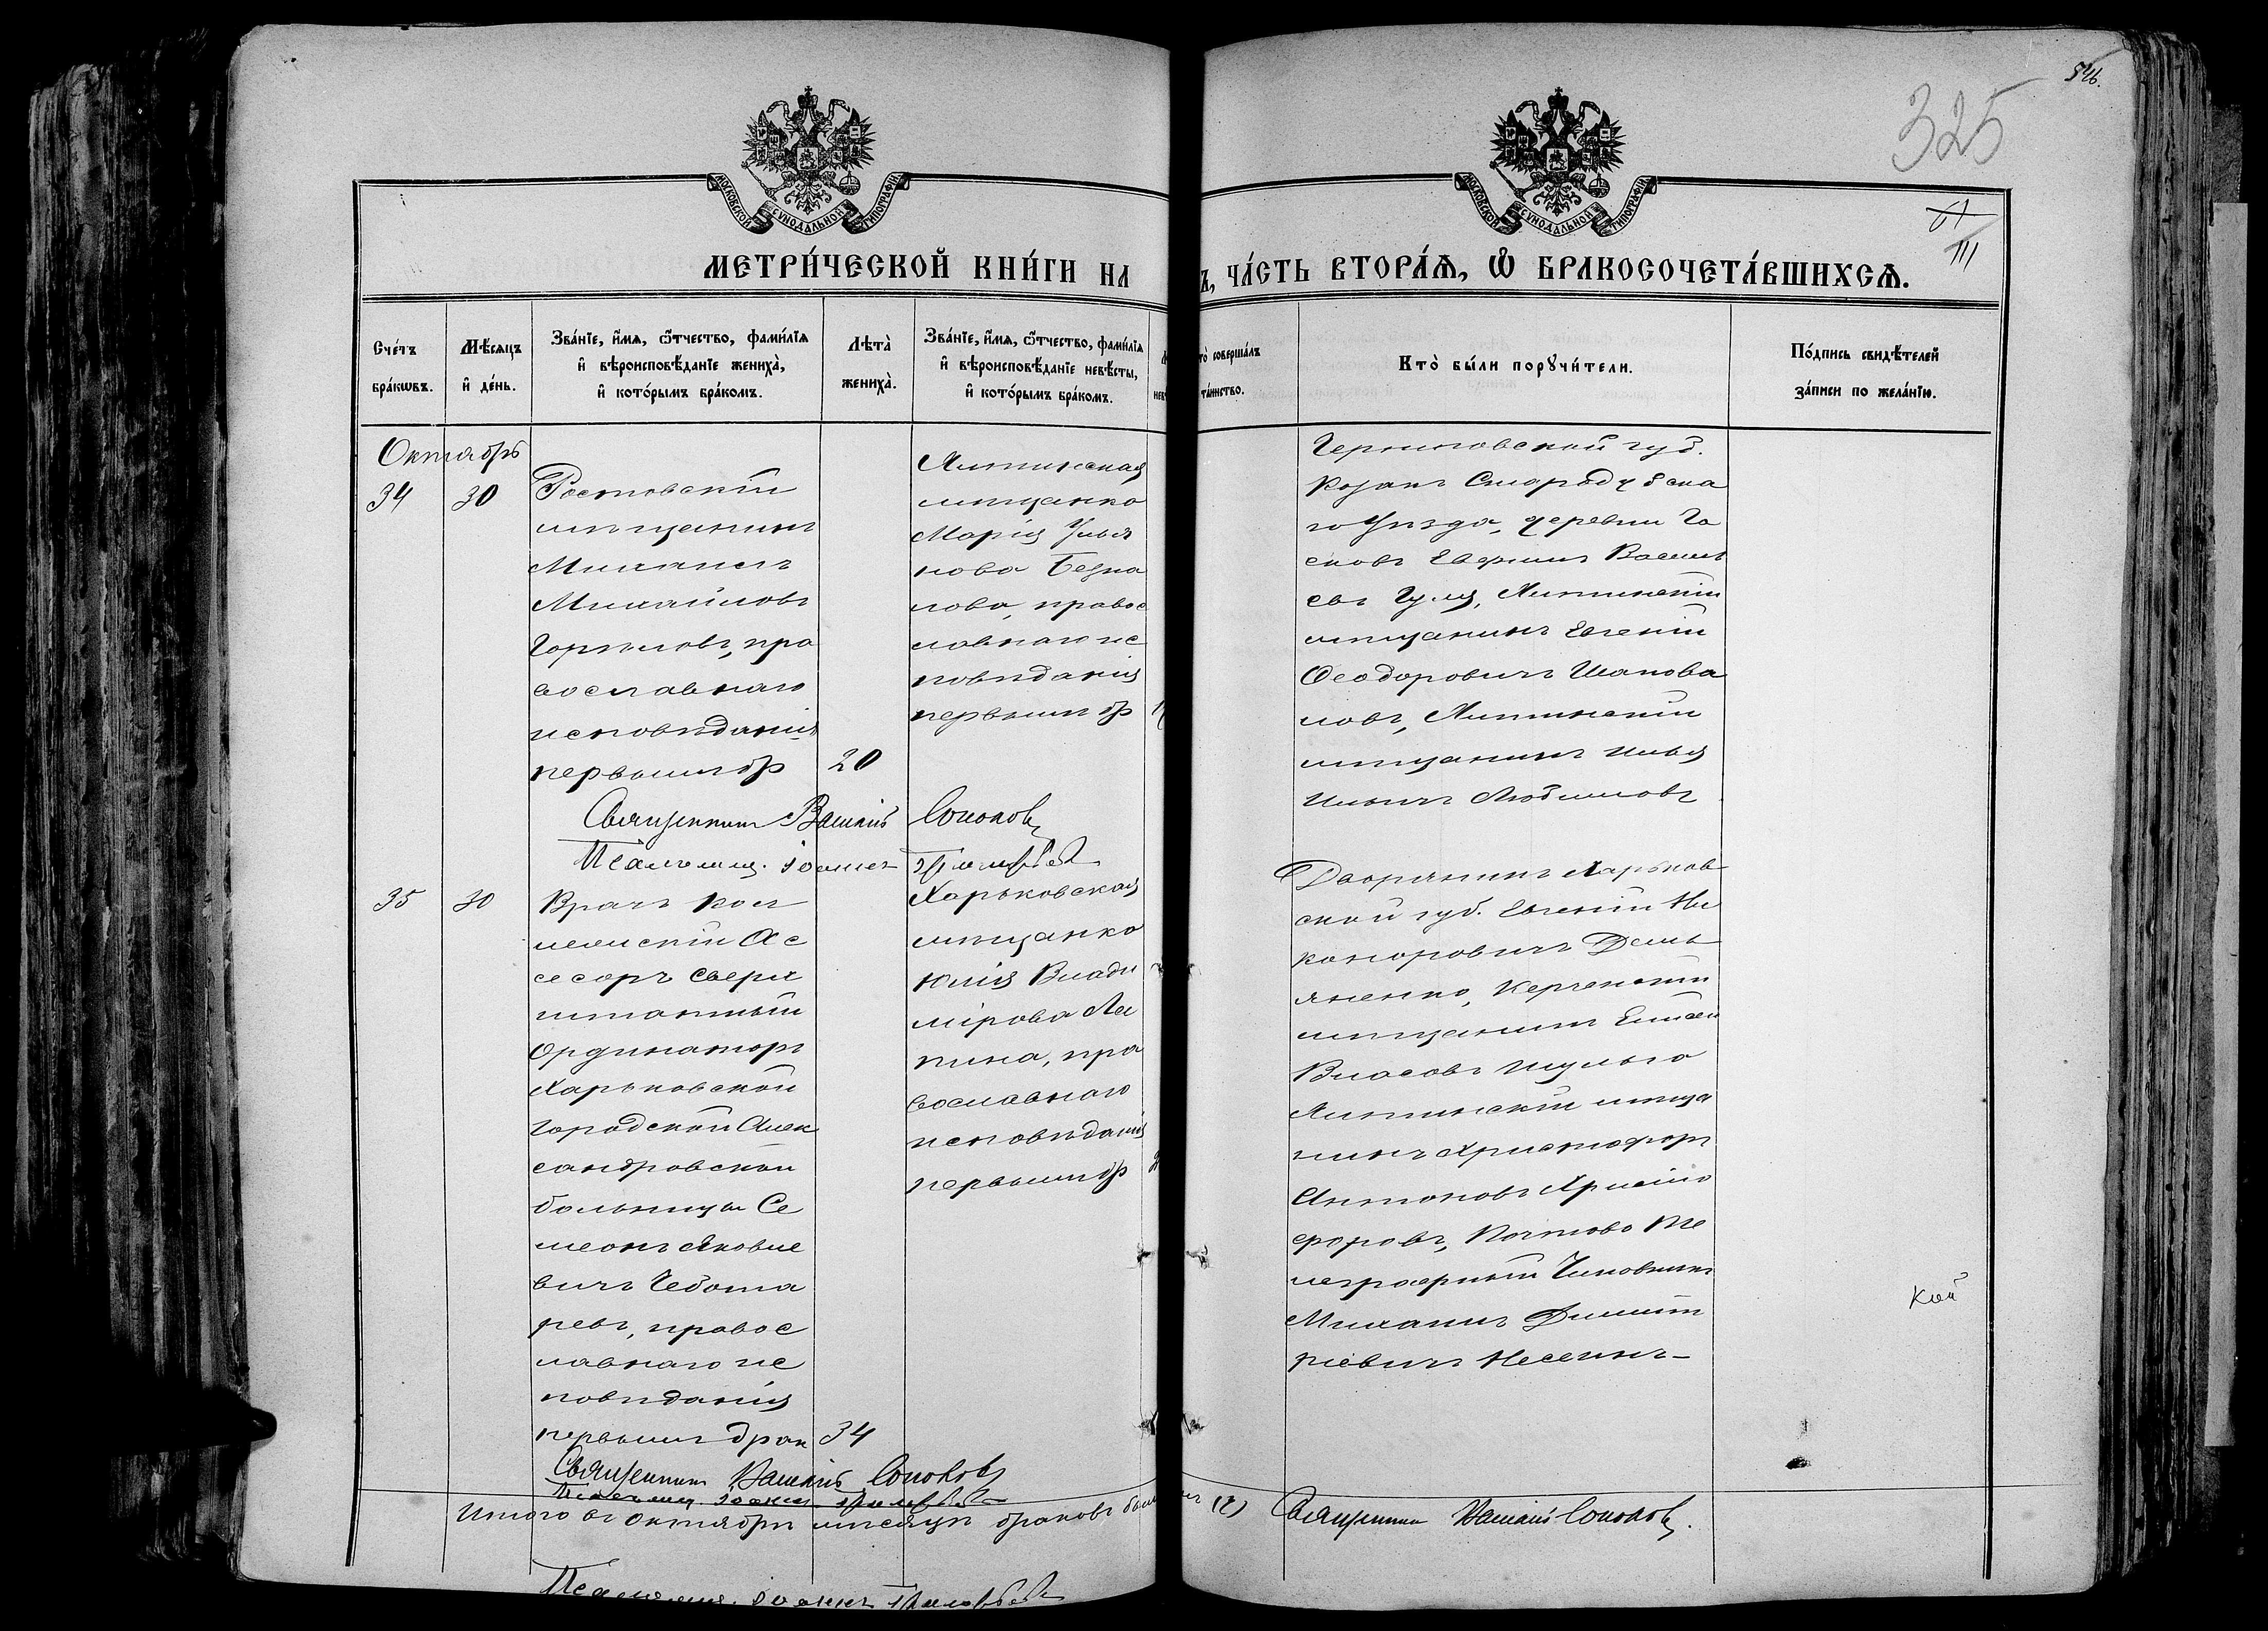 546.
325
МОСКОВСКОЙ СУНОДАЛЬНОЙ ТИПОГРАФІИ
МОСКОВСКОЙ СУНОДАЛЬНОЙ ТИПОГРАФІИ
III
МЕТРИ́ЧЕСКОЙ КНИ́ГИ НА
Ъ, ЧА́СТЬ ВТОРА́Я, Ѿ БРАКОСОЧЕТА́ВШИХСЯ.
Сче́тъ бра́кѡвъ.
Мѣ́сяцъ и҆ де́нь.
Зва́нїе, и҆́мя, ѻ҆́тчество, фами́лїя
и҆ вѣроисповѣ́данїе жениха̀,
и҆ кото́рымъ бра́комъ.
Лѣта̀ жениха̀.
Зва́нїе, и҆́мя, ѻ҆́тчество, фами́лїя
и҆ вѣроисповѣ́данїе невѣ́сты,
и҆ кото́рымъ бра́комъ.
то̀ соверша́лъ
та́инство.
Кто̀ бы́ли порꙋчи́тели.
По́дпись свидѣ́телей
за́писи по жела́нїю.
Октябрь
34
30
Ростовскій
мѣщанинъ
Михаилъ
Михайловъ
Горѣловъ, пра
вославнаго
исповѣданія
первымъ бр
20
Ялтинская
мѣщанка
Марія Улья
нова
лова, правос
лавнаго ис
повѣданія
первымъ бр
Черниговской губ.
Козакъ Стародубска
го уѣзда, деревни Ча
сновъ Ефимъ Василь
евъ Ялтинскій
мѣщанинъ Евгеній
Феодоровичъ Шапова
ловъ, Ялтинскій
мѣщанинъ Илья
Ильичъ Любимовъ
Священникъ Василій Соколовъ
Псаломщ. Іоаннъ
35
30
Врачъ Кол
лежскій Ас
сесоръ Сверх
штатный
Ординаторъ
Харьковской
Городской Алек
сандровской
больницы Се
меонъ Яковле
вичъ Чебота
ревъ, правос
лавнаго ис
повѣданія
первымъ брак
34
Харьковская
мѣщанка
Юлія Влади
мірова Ла
пина, пра
вославнаго
исповѣданія
первымъ бр
Дворянинъ Харьков
ской губ. Евгеній Ни
коноровичъ Демь
яненко, Керченскій
мѣщанинъ Елисей
Власовъ Шульга
Ялтинскій мѣща
нинъ Христофоръ
Антоновъ Христо
форовъ, Почтово Те
леграфный Чиновникъ
Михаилъ Димит
ріевичъ Несвинъ
Кой
Священникъ Василій Соколовъ
Псаломщ. Іоаннъ
Итого въ Октябрѣ мѣсяцѣ браковъ было (2) Священникъ Василій Соколовъ.
Псаломщ. Іоаннъ